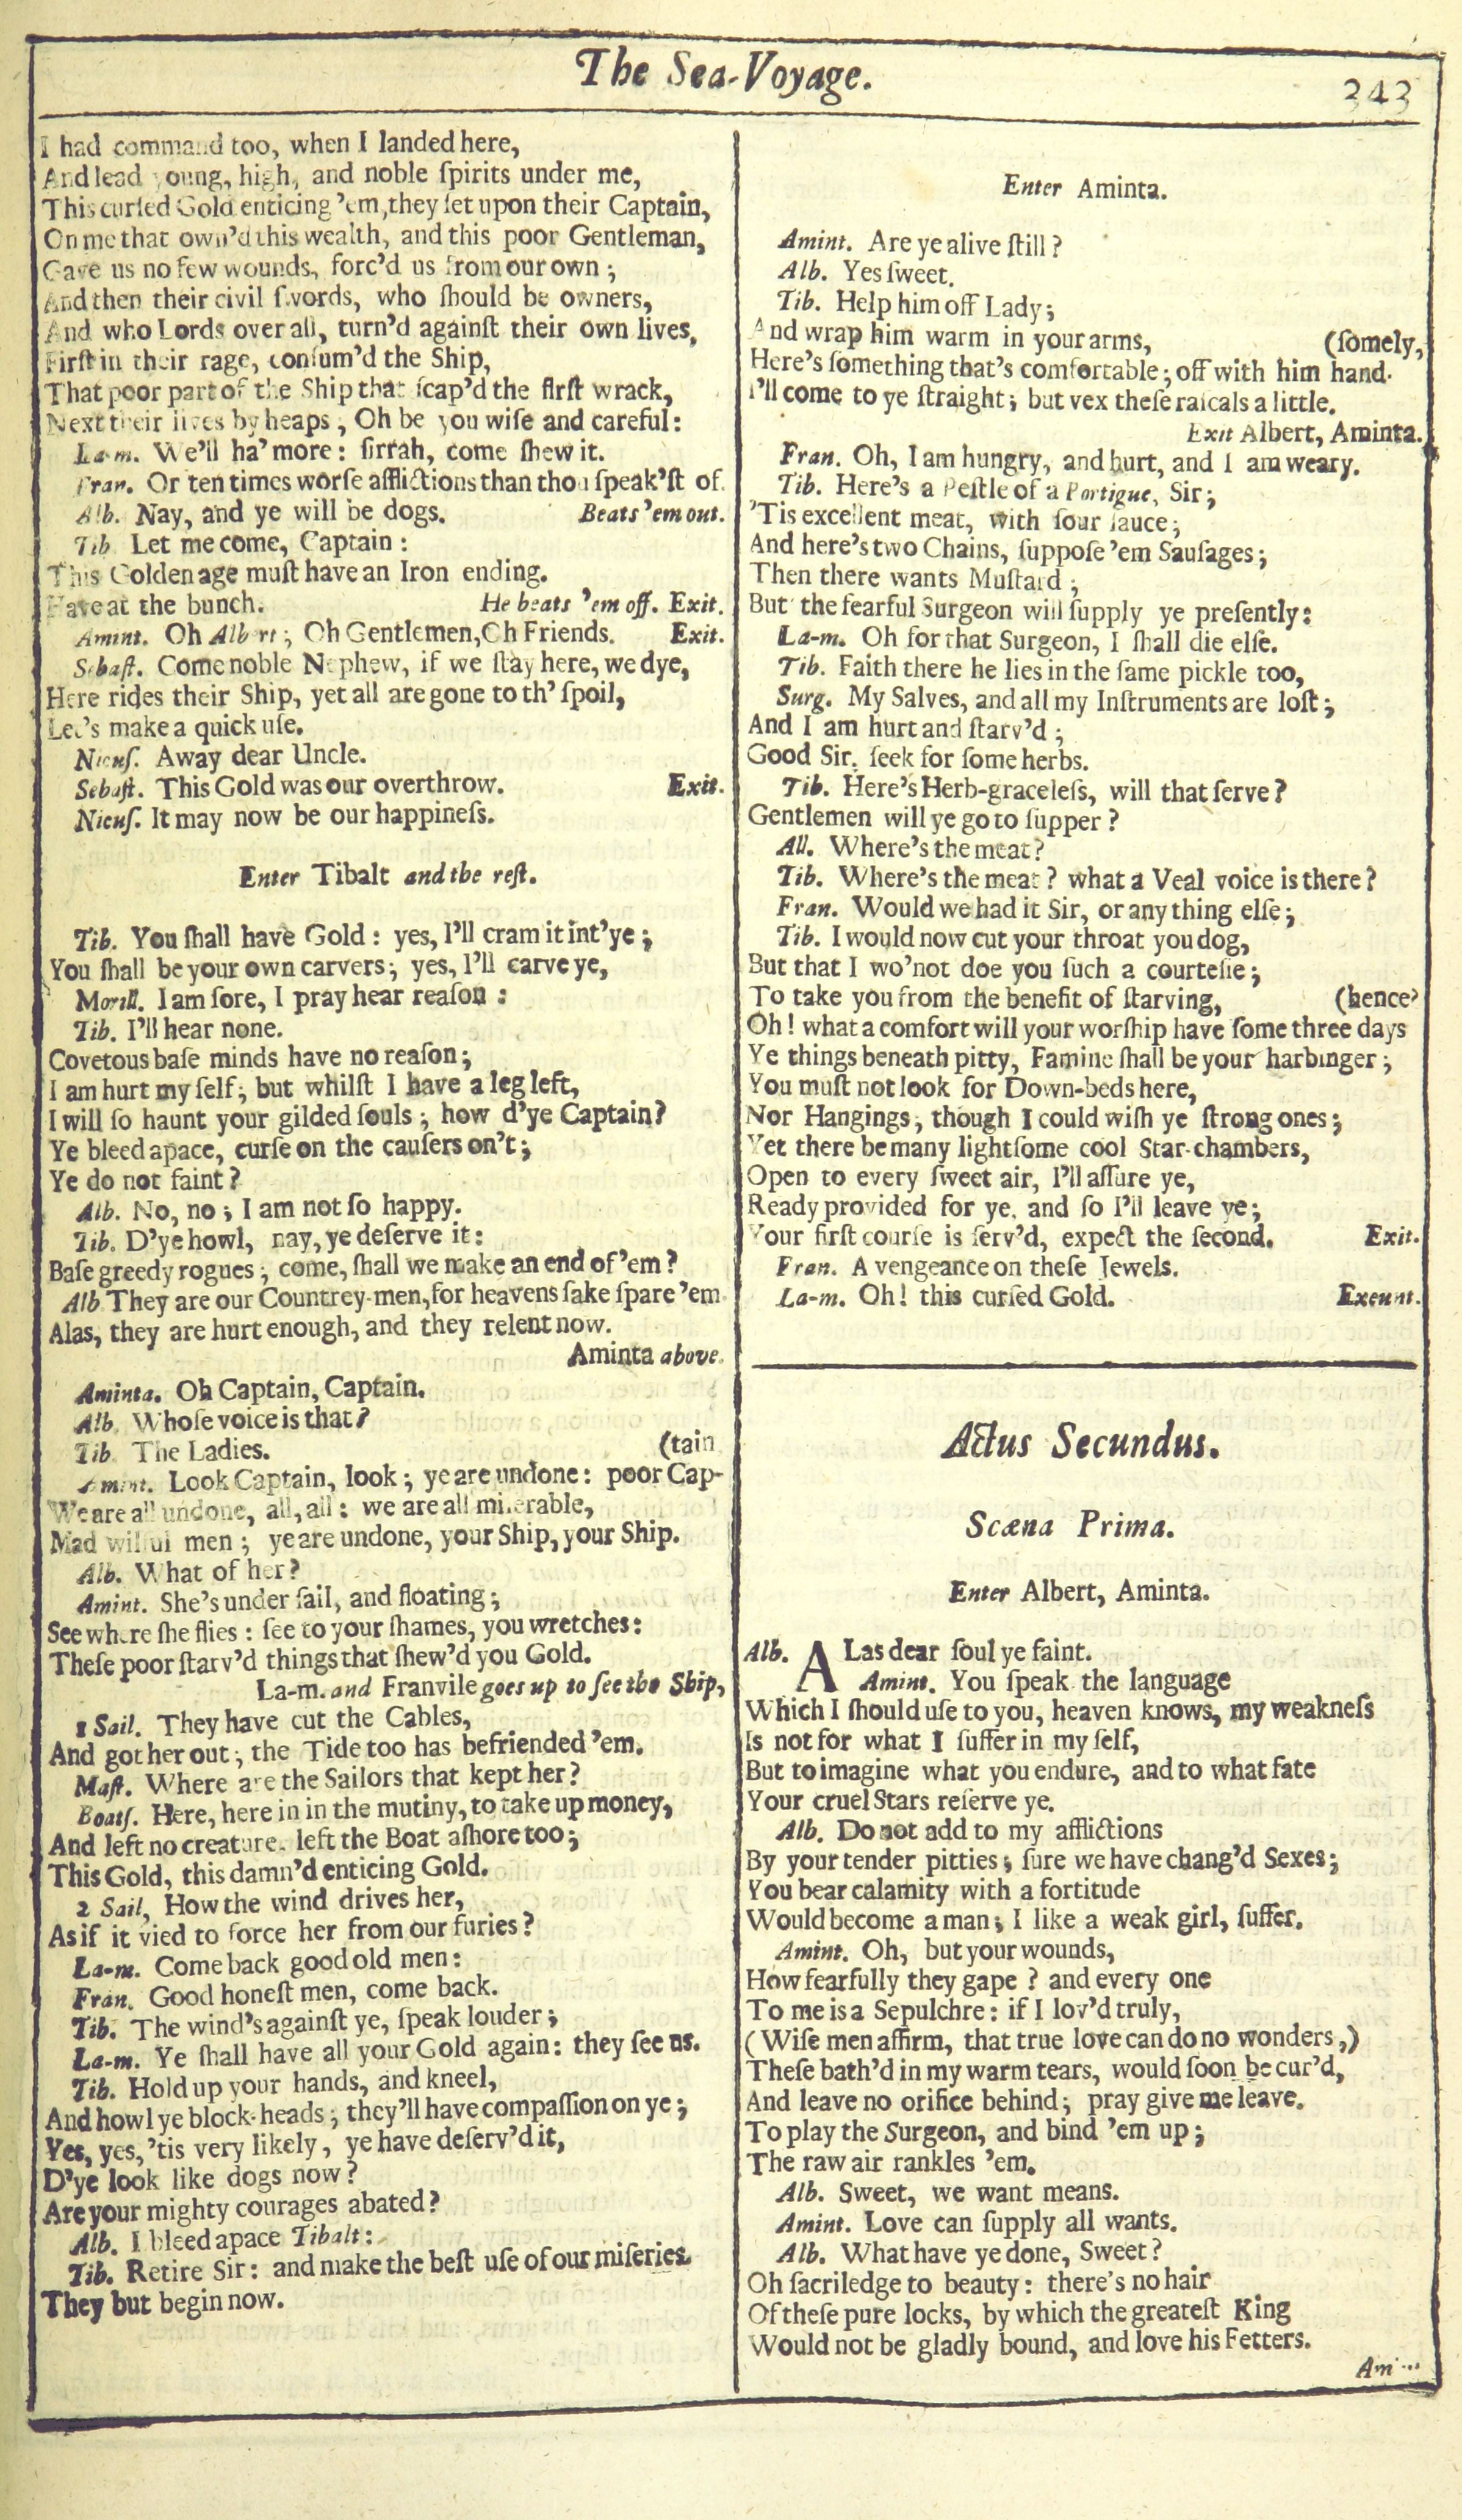 The Sea-Voyage.
343
I had command too, when I landed here,
And lead young, high, and noble ſpirits under me,
This curſed Gold enticing 'em, they ſet upon their Captain,
On me that own'd this wealth, and this poor Gentleman,
Gave us no few wounds, forc'd us from our own;
And then their civil ſwords, who ſhould be owners,
And who Lords over all, turn'd againſt their own lives,
Firſt in their rage, conſum'd the Ship,
That poor part of the Ship that ſcap'd the firſt wrack,
Next their lives by heaps; Oh be you wiſe and careful:
La-m. We'll ha' more: ſirrah, come ſhew it.
Fran. Or ten times worſe afflictions than thou ſpeak'ſt of.
Alb. Nay, and ye will be dogs. Beats 'em out.
Tib. Let me come, Captain:
This Golden age muſt have an Iron ending.
Have at the bunch. He beats 'em off. Exit.
Amint. Oh Albert; Oh Gentlemen, Oh Friends. Exit.
Sebaſt. Come noble Nephew, if we ſtay here, we dye,
Here rides their Ship, yet all are gone to th' ſpoil,
Let's make a quick uſe.
Nicuſ. Away dear Uncle.
Sebaſt. This Gold was our overthrow. Exit.
Nicuſ. It may now be our happineſs.
Enter Tibalt and the reſt.
Tib. You ſhall have Gold: yes, I'll cram it int'ye;
You ſhall be your own carvers; yes, I'll carve ye,
Morill. I am ſore, I pray hear reaſon:
Tib. I'll hear none.
Covetous baſe minds have no reaſon;
I am hurt my ſelf; but whilſt I have a leg left,
I will ſo haunt your gilded ſouls; how d'ye Captain?
Ye bleed apace, curſe on the cauſers on't;
Ye do not faint?
Alb. No, no; I am not ſo happy.
Tib. D'ye howl, nay, ye deſerve it:
Baſe greedy rogues; come, ſhall we make an end of 'em?
Alb They are our Countrey-men, for heavens ſake ſpare 'em
Alas, they are hurt enough, and they relent now.
Aminta above.
Aminta. Oh Captain, Captain.
Alb. Whoſe voice is that?
Tib. The Ladies. (tain
Amint. Look Captain, look; ye are undone: poor Cap-
We are all undone, all, all: we are all miſerable,
Mad wilful men; ye are undone, your Ship, your Ship.
Alb. What of her?
Amint. She's under ſail, and floating;
See where ſhe flies: ſee to your ſhames, you wretches:
Theſe poor ſtarv'd things that ſhew'd you Gold.
La-m. and Franvile goes up to ſee the Ship,
1 Sail. They have cut the Cables,
And got her out; the Tide too has befriended 'em.
Maſt. Where are the Sailors that kept her?
Boatſ. Here, here in in the mutiny, to take up money,
And left no creature, left the Boat aſhore too;
This Gold, this damn'd enticing Gold.
2 Sail, How the wind drives her,
As if it vied to force her from our furies?
La-m. Come back good old men:
Fran. Good honeſt men, come back.
Tib. The wind's againſt ye, ſpeak louder;
La-m. Ye ſhall have all your Gold again: they ſee us.
Tib. Hold up your hands, and kneel,
And howl ye block-heads; they'll have compaſſion on ye;
Yes, yes, 'tis very likely, ye have deſerv'd it,
D'ye look like dogs now?
Are your mighty courages abated?
Alb. I bleed apace Tibalt:
Tib. Retire Sir: and make the beſt uſe of our miſeries.
They but begin now.
Enter Aminta.
Amint. Are ye alive ſtill?
Alb. Yes ſweet.
Tib. Help him off Lady;
And wrap him warm in your arms, (ſomely,
Here's ſomething that's comfortable; off with him hand-
I'll come to ye ſtraight; but vex theſe raſcals a little.
Exit Albert, Aminta.
Fran. Oh, I am hungry, and hurt, and I am weary.
Tib. Here's a Peſtle of a Portigue, Sir;
'Tis excellent meat, with ſour ſauce;
And here's two Chains, ſuppoſe 'em Sauſages;
Then there wants Muſtard;
But the fearful Surgeon will ſupply ye preſently:
La-m. Oh for that Surgeon, I ſhall die elſe.
Tib. Faith there he lies in the ſame pickle too,
Surg. My Salves, and all my Inſtruments are loſt;
And I am hurt and ſtarv'd;
Good Sir, ſeek for ſome herbs.
Tib. Here's Herb-graceleſs, will that ſerve?
Gentlemen will ye go to ſupper?
All. Where's the meat?
Tib. Where's the meat? what a Veal voice is there?
Fran. Would we had it Sir, or any thing elſe;
Tib. I would now cut your throat you dog,
But that I wo'not doe you ſuch a courteſie;
To take you from the benefit of ſtarving, (hence,
Oh! what a comfort will your worſhip have ſome three days
Ye things beneath pitty, Famine ſhall be your harbinger;
You muſt not look for Down-beds here,
Nor Hangings; though I could wiſh ye ſtrong ones;
Yet there be many lightſome cool Star-chambers,
Open to every ſweet air, I'll aſſure ye,
Ready provided for ye, and ſo I'll leave ye;
Your firſt courſe is ſerv'd, expect the ſecond. Exit.
Fran. A vengeance on theſe Jewels.
La-m. Oh! this curſed Gold. Exeunt.
Actus Secundus.
Scæna Prima.
Enter Albert, Aminta.
Alb. ALas dear ſoul ye faint.
Amint. You ſpeak the language
Which I ſhould uſe to you, heaven knows, my weakneſs
Is not for what I ſuffer in my ſelf,
But to imagine what you endure, and to what fate
Your cruel Stars reſerve ye.
Alb. Do not add to my afflictions
By your tender pitties; ſure we have chang'd Sexes;
You bear calamity with a fortitude
Would become a man; I like a weak girl, ſuffer.
Amint. Oh, but your wounds,
How fearfully they gape? and every one
To me is a Sepulchre: if I lov'd truly,
(Wiſe men affirm, that true love can do no wonders,)
Theſe bath'd in my warm tears, would ſoon be cur'd,
And leave no orifice behind; pray give me leave.
To play the Surgeon, and bind 'em up;
The raw air rankles 'em.
Alb. Sweet, we want means.
Amint. Love can ſupply all wants.
Alb. What have ye done, Sweet?
Oh ſacriledge to beauty: there's no hair
Of theſe pure locks, by which the greateſt King
Would not be gladly bound, and love his Fetters.